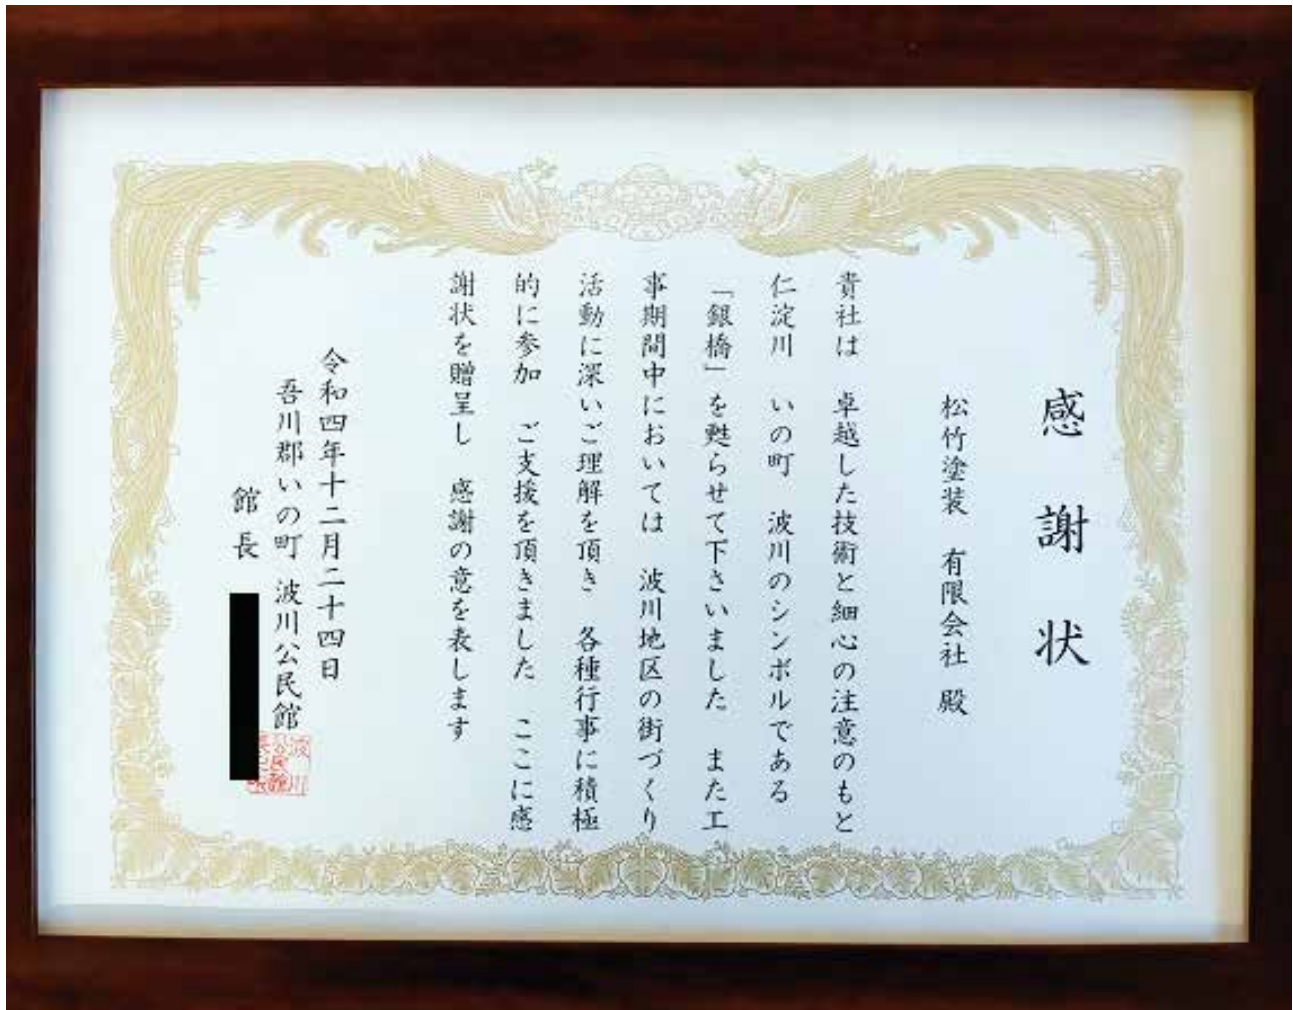 感謝状
松竹塗装　有限会社　殿
貴社は　卓越した技術と細心の注意のもと
仁淀川　いの町　波川のシンボルである
「銀橋」を甦らせて下さいました　また工
事期間中においては　波川地区の街づくり
活動に深いご理解を頂き　各種行事に積極
的に参加　ご支援を頂きました　ここに感
謝状を贈呈し　感謝の意を表します
令和四年十二月二十四日
吾川郡いの町　波川公民館
館長